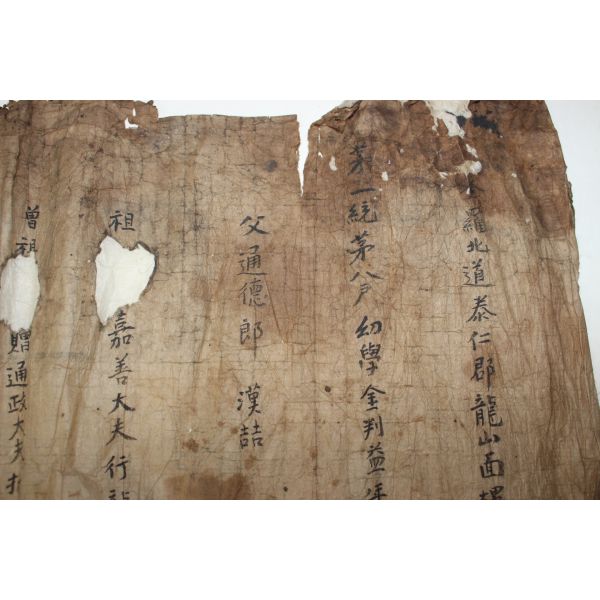 全羅北道泰仁郡龍山面
第一統第八戶 幼學金判益年
父通德郎 漢喆
祖 嘉善大夫行
曾祖 贈通政大夫